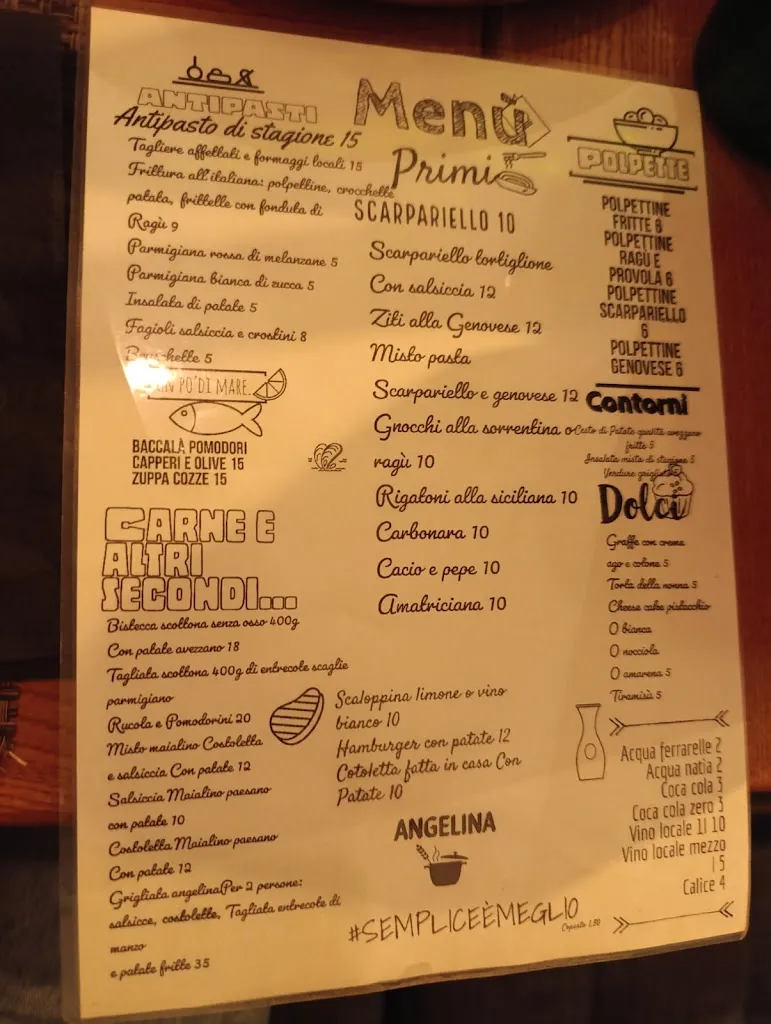 ANTIPASTI
Antipasto di stagione 15
Tagliere affettati e formaggi locali 15
Frittura all'italiana: polpettine, crocchette
patata, frittelle con fonduta di
Ragù 9
Parmigiana rossa di melanzane 5
Parmigiana bianca di zucca 5
Insalata di patate 5
Fagioli salsiccia e crostini 8
Bruschette 5
UN PO' DI MARE.
BACCALÀ POMODORI
CAPPERI E OLIVE 15
ZUPPA COZZE 15
CARNE E
ALTRI
SECONDI...
Bistecca scottona senza osso 400g
Con patate avezzano 18
Tagliata scottona 400g di entrecote scaglie
parmigiano
Rucola e Pomodorini 20
Misto maialino Costoletta
e salsiccia Con patate 12
Salsiccia Maialino paesano
con patate 10
Costoletta Maialino paesano
Con patate 12
Grigliata angelinaPer 2 persone:
salsicce, costolette, Tagliata entrecote di
manzo
e patate fritte 35
Menù
Primi
SCARPARIELLO 10
Scarpariello tortiglione
Con salsiccia 12
Ziti alla Genovese 12
Misto pasta
Scarpariello e genovese 12
Gnocchi alla sorrentina o
ragù 10
Rigatoni alla siciliana 10
Carbonara 10
Cacio e pepe 10
Amatriciana 10
Scaloppina limone o vino
bianco 10
Hamburger con patate 12
Cotoletta fatta in casa Con
Patate 10
ANGELINA
#SEMPLICEÈMEGLIO
Coperto 1,50
POLPETTE
POLPETTINE
FRITTE 6
POLPETTINE
RAGÙ E
PROVOLA 6
POLPETTINE
SCARPARIELLO
6
POLPETTINE
GENOVESE 6
Contorni
Cesto di Patate qualità avezzano
fritte 5
Insalata mista di stagione 5
Verdure grigliate
Dolci
Graffe con crema
ago e colone 5
Torta della nonna 5
Cheese cake pistacchio
O bianca
O nocciola
O amarena 5
Tiramisù 5
Acqua ferrarelle 2
Acqua natia 2
Coca cola 3
Coca cola zero 3
Vino locale 1l 10
Vino locale mezzo
l 5
Calice 4